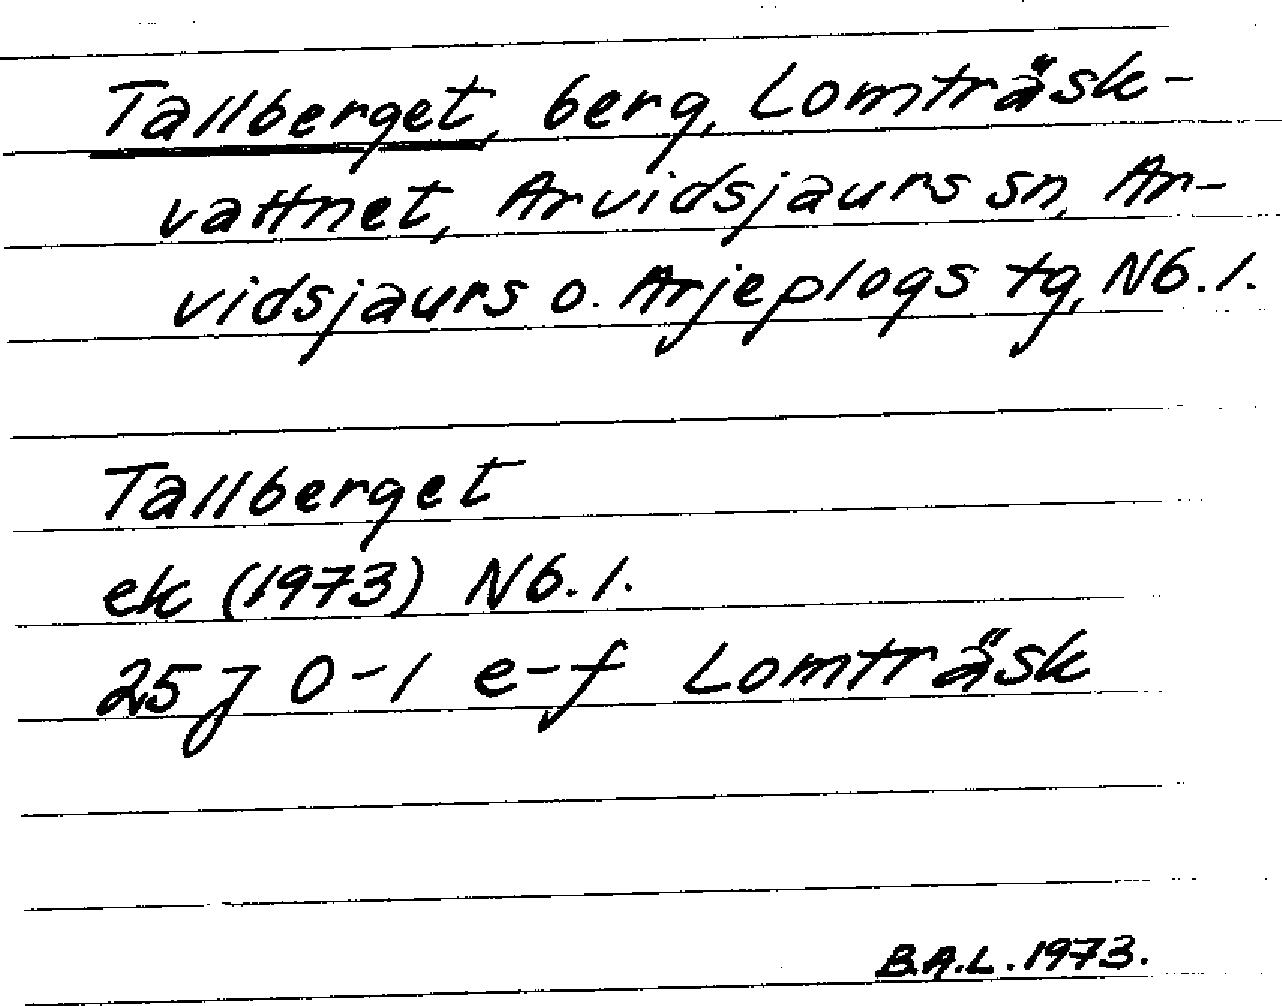 Tallberget, berg, Lomträsk-
vattnet, Arvidsjaurs sn, Ar-
vidsjaurs o. Arjeplogs tg, Nb. l.
Tallberget
ek (1973) Nb. l.
25 J 0-1 e-f Lomträsk
B.A.L. 1973.